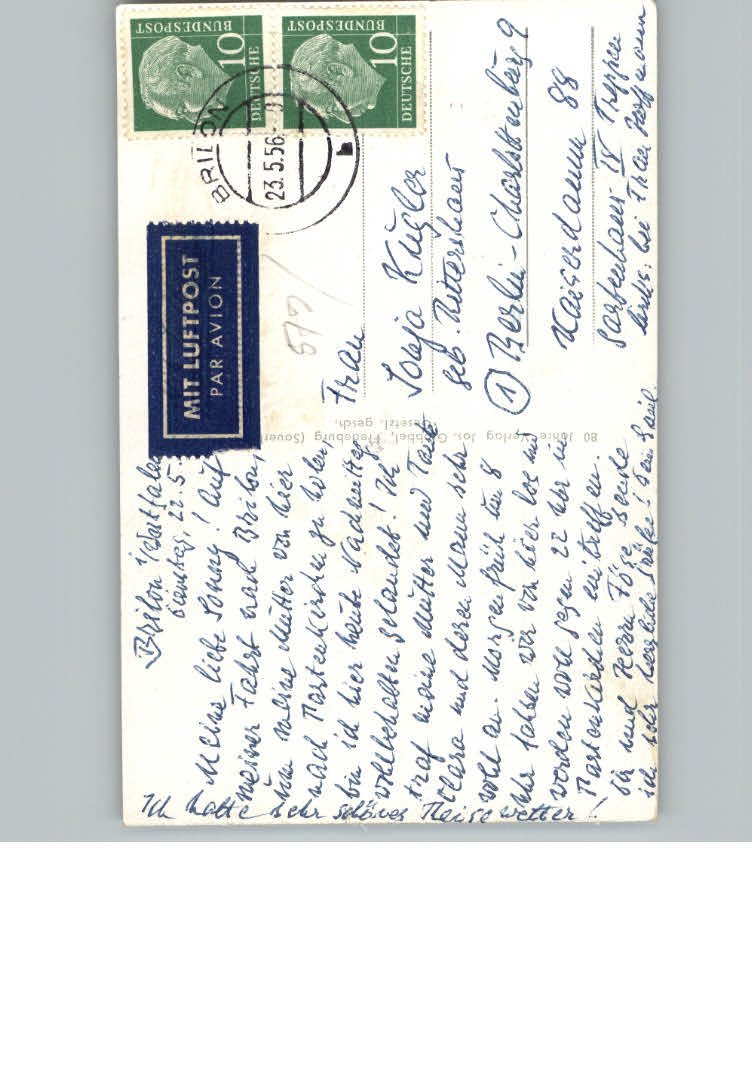 Brilon i/Westfalen
Dienstag, 22.5.
Meine liebe Sonny! Auf
meiner Fahrt nach Brilon,
um meine Mutter von hier
nach Partenkirchen zu holen,
bin ich hier heute Nachmittag
wohlbehalten gelandet! Ich
traf meine Mutter und Tante
Clara und deren Mann sehr
wohl an. Morgen früh um 8
Uhr fahren wir von hier los und
werden wohl gegen 22 Uhr in
Partenkirchen eintreffen.
Dir und Herrn sende
ich sehr herzliche Grüße! Dein
Ich hatte sehr schönes Reisewetter!
MIT LUFTPOST
PAR AVION
DEUTSCHE
BUNDESPOST
10
DEUTSCHE
BUNDESPOST
10
BRILON
23.5.56
b
575
Frau
Sonja Kugler
geb. Rittershaus
(1) Berlin-Charlottenburg 9
Kaiserdamm 88
Gartenhaus IV Treppen
links: bei Frau Hoffmann
80 Jahre Verlag Jos. Grobbel, Fredeburg (Sauerl
Gesetzl. gesch.